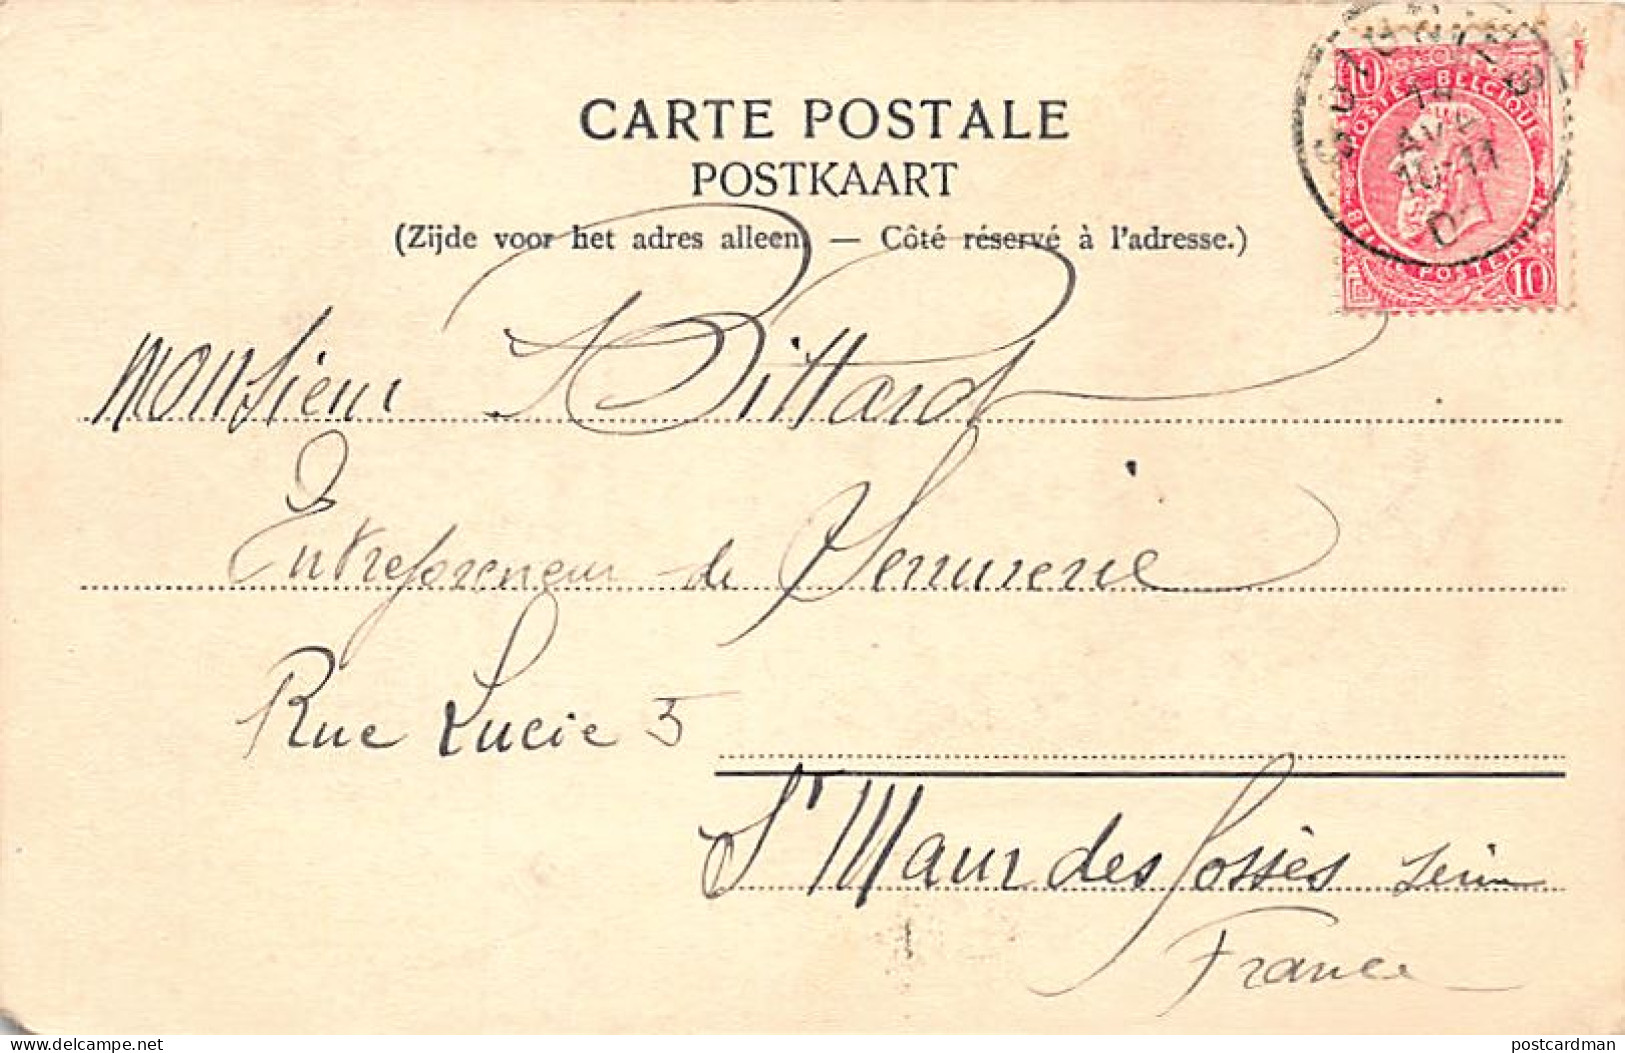 CARTE POSTALE
POSTKAART
(Zijde voor het adres alleen. — Côté réservé à l'adresse.)
10
POSTES BELGIQUE
14
AVR
10-11
07
BELGIE POSTERIJEN
10
Monsieur Bittard
Entrepreneur de Serrurerie
Rue Lucie 5
St Maur des Fossés Seine
France
delcampe.net
postcardman